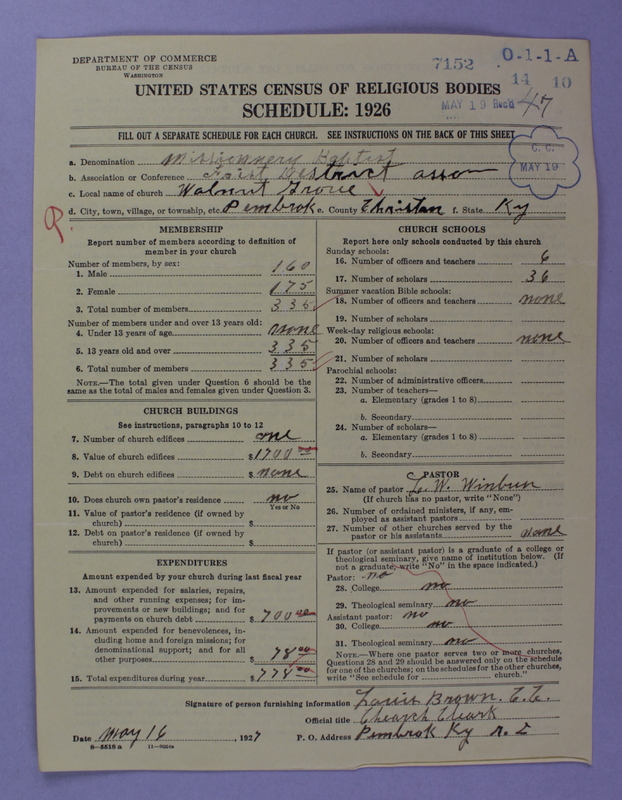 DEPARTMENT OF COMMERCE
BUREAU OF THE CENSUS
WASHINGTON
7152
O-1-1-A
14 10
MAY 19 Rec'd 47
UNITED STATES CENSUS OF RELIGIOUS BODIES
SCHEDULE: 1926
FILL OUT A SEPARATE SCHEDULE FOR EACH CHURCH. SEE INSTRUCTIONS ON THE BACK OF THIS SHEET
C. C.
MAY 19
a. Denomination Missionnery Baptist
b. Association or Conference Foist Destract asson
c. Local name of church Walnut Grove
d. City, town, village, or township, etc. Pembrok e. County Christan f. State Ky
MEMBERSHIP
Report number of members according to definition of
member in your church
Number of members, by sex:
1. Male 160
2. Female 175
3. Total number of members 335
Number of members under and over 13 years old:
4. Under 13 years of age none
5. 13 years old and over 335
6. Total number of members 335
NOTE.—The total given under Question 6 should be
same as the total of males and females given under Question 3.
CHURCH BUILDINGS
See instructions, paragraphs 10 to 12
7. Number of church edifices one
8. Value of church edifices $1700 00
9. Debt on church edifices $ none
10. Does church own pastor's residence no
Yes or No
11. Value of pastor's residence (if owned by
church) $
12. Debt on pastor's residence (if owned by
church) $
EXPENDITURES
Amount expended by your church during last fiscal year
13. Amount expended for salaries, repairs,
and other running expenses; for im-
provements or new buildings; and for
payments on church debt $ 700 00
14. Amount expended for benevolences, in-
cluding home and foreign missions; for
denominational support; and for all
other purposes 78 00
15. Total expenditures during year $ 778 00
CHURCH SCHOOLS
Report here only schools conducted by this church
Sunday schools:
16. Number of officers and teachers 6
17. Number of scholars 36
Summer vacation Bible schools:
18. Number of officers and teachers none
19. Number of scholars
Week-day religious schools:
20. Number of officers and teachers none
21. Number of scholars
Parochial schools:
22. Number of administrative officers
23. Number of teachers—
a. Elementary (grades 1 to 8)
b. Secondary
24. Number of scholars—
a. Elementary (grades 1 to 8)
b. Secondary
PASTOR
25. Name of pastor L. W. Winburn
(If church has no pastor, write "None")
26. Number of ordained ministers, if any, em-
ployed as assistant pastors
27. Number of other churches served by the
pastor or his assistants none
If pastor (or assistant pastor) is a graduate of a college or
theological seminary, give name of institution below. (If
not a graduate, write "No" in the space indicated.)
Pastor: no
28. College no
29. Theological seminary no
Assistant pastor: no
30. College no
31. Theological seminary no
NOTE.—Where one pastor serves two or more churches,
Questions 28 and 29 should be answered only on the schedule
for one of the churches; on the schedules for the other churches,
write "See schedule for church."
Signature of person furnishing information Louis Brown. C.C.
Official title Cheurch Cleark
Date May 16, 1927 P. O. Address Pembrok Ky R. 2
8—5518 a